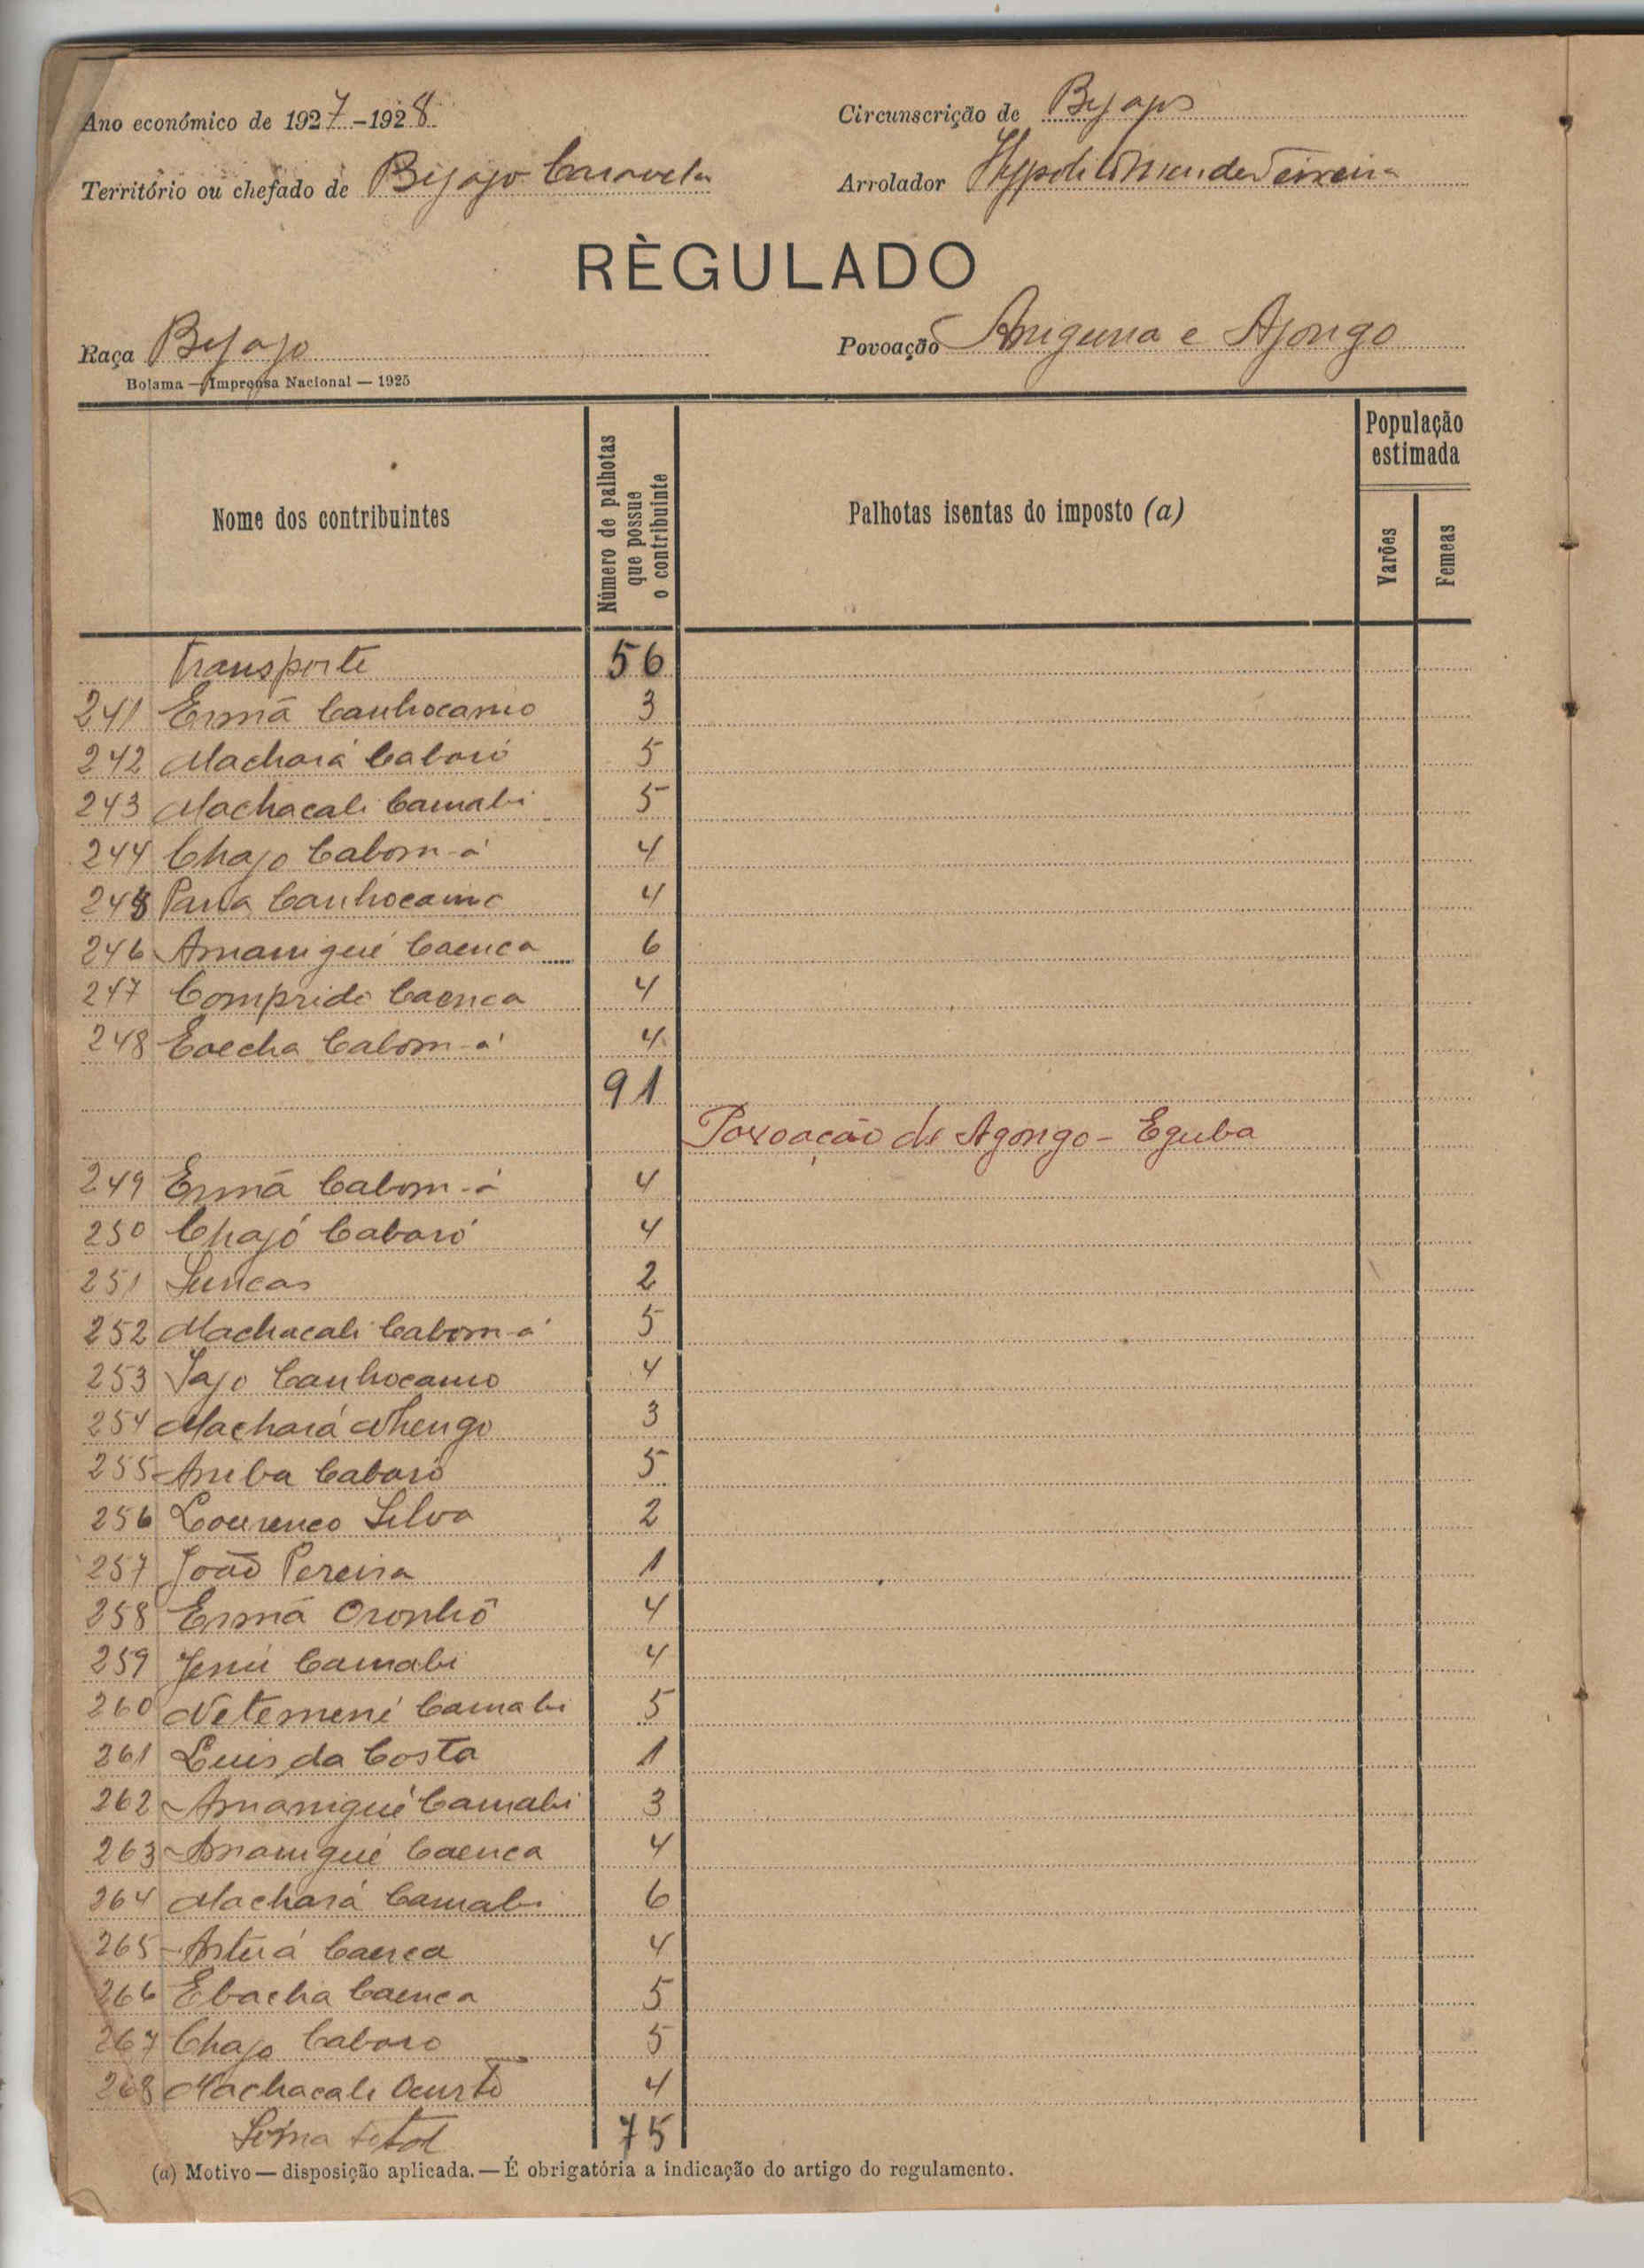 Ano económico de 1927-1928
Circunscrição de Byapos
Território ou chefado de Bijago Caravela
Arrolador Hypolito Mendes Teixeira
RÈGULADO
Raça Byajo
Povoação e Ajongo
Bolama — Imprensa Nacional — 1925
Nome dos contribuintes
Número de palhotas que possue o contribuinte
Palhotas isentas do imposto (a)
População estimada
Varões
Femeas
Transporte 56
241 Ermã Canhocamo 3
242 Machará Caboró 5
243 Machacali Camabi 5
244 Chajo Cabom-á 4
245 Pana Canhocamo 4
246 Amanigué Caenca 6
247 Comprido Caenca 4
248 Eoecha Cabom-á 4
91
Povoação de Agongo - Eguba
249 Ermã Cabom-á 4
250 Chajó Caboró 4
251 Suncar 2
252 Machacali Cabom-á 5
253 Jajo Canhocamo 4
254 Machará Nhengo 3
255 Aniba Caboró 5
256 Lourenco Silva 2
257 João Pereira 1
258 Ermã Oronhô 4
259 Jenú Camabi 4
260 Netemené Camabi 5
261 Luis da Costa 1
262 Amanigué Camabi 3
263 Amanigué Caenca 4
264 Machará Camabi 6
265 Arturá Caenca 4
266 Ebacha Caenca 5
267 Chajo Caboro 5
268 Machacali Ocurtô 4
Sôma total 75
(a) Motivo — disposição aplicada. — É obrigatória a indicação do artigo do regulamento.